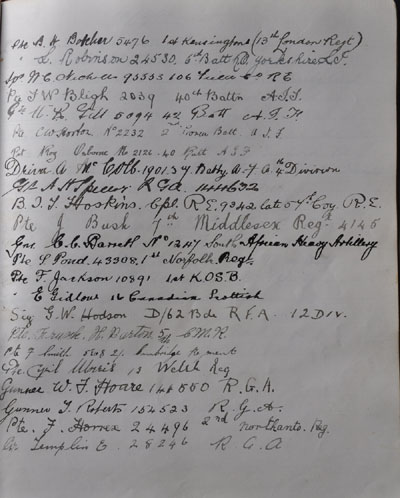 Pte B. H. Botcher 5476 1st Kensingtons (13th London Regt)
" L. Robinson 24530, 6th Batt K.O. Yorkshire L.I.
Spr W. C. 93333 106 Field Co R.E
Pte J W Bligh 2039 40th Battn A.I.F
Gill 5094 42 Batt A.I.F.
Pte No 2232 Batt. A.I.F
Pte Roy Osborne No 2126. 40 Batt A.I.F
Driver A. Mc 19013 Batty A.F.A. 4th Division
Gnr A. N. Spicer. R.G.A. 144632
B. I. J. Hoskins. Cpl. R.E. 9342 late 57th Coy R.E.
Pte J Bush 7th Middlesex Regt 4146
Gnr. C. C. Barrett No 12117 South African Heavy Artillery
Pte S Pond. 43308. 1st Norfolk Regt
Pte F. Jackson 10891 1st K.O.S.B.
" E Gidlow 16 Canadian Scottish
Sig G. W. Hodson D/62 Bde R.F.A. 12 Div.
Pte. Frank H. Burton 5th C.M.R.
Pte F Smith
Pte Cyril 13 Welch Reg
Gunner W. J. Hoare 144550 R.G.A.
Gunner J. Roberts 154523 R.G.A.
Pte. J. Horrex 24496 2nd Northants. Reg.
Gr Templin E. 28246 R.G.A